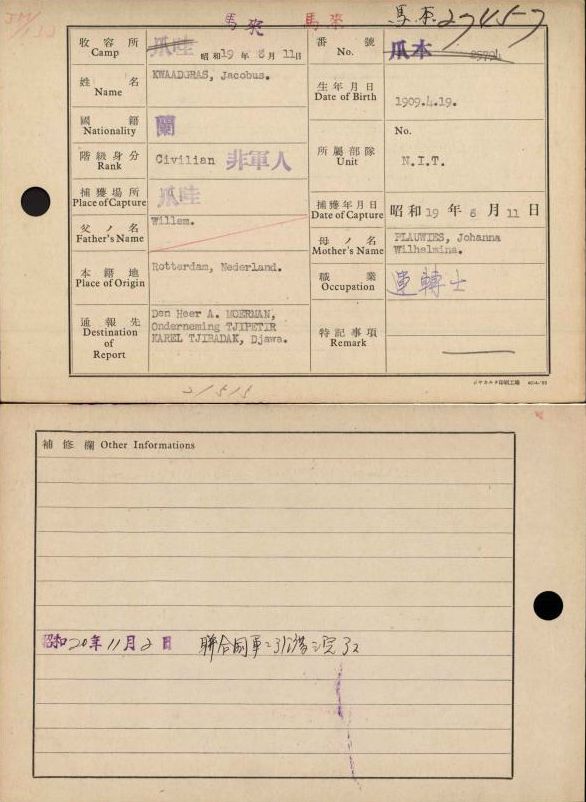 馬來 馬來 馬來 27457
收容所 Camp 爪哇 昭和19年8月11日
番號 No. 爪本
姓名 Name KWAADGRAS, Jacobus.
生年月日 Date of Birth 1909.4.19.
國籍 Nationality 蘭
階級身分 Rank Civilian 非軍人
所屬部隊 Unit No. N.I.T.
捕獲場所 Place of Capture 爪哇
捕獲年月日 Date of Capture 昭和19年8月11日
父ノ名 Father's Name Willem.
母ノ名 Mother's Name PLAUWIES, Johanna
Wilhelmina.
本籍地 Place of Origin Rotterdam, Nederland.
職業 Occupation 運轉士
通報先 Destination of Report Den Heer A. MOERMAN,
Onderneming TJIPETIR
KAREL TJIBADAK, Djawa.
特記事項 Remark
21515
ジヤカルタ印刷工場
補修欄 Other Informations
昭和20年11月2日 聯合國軍ニ引渡濟